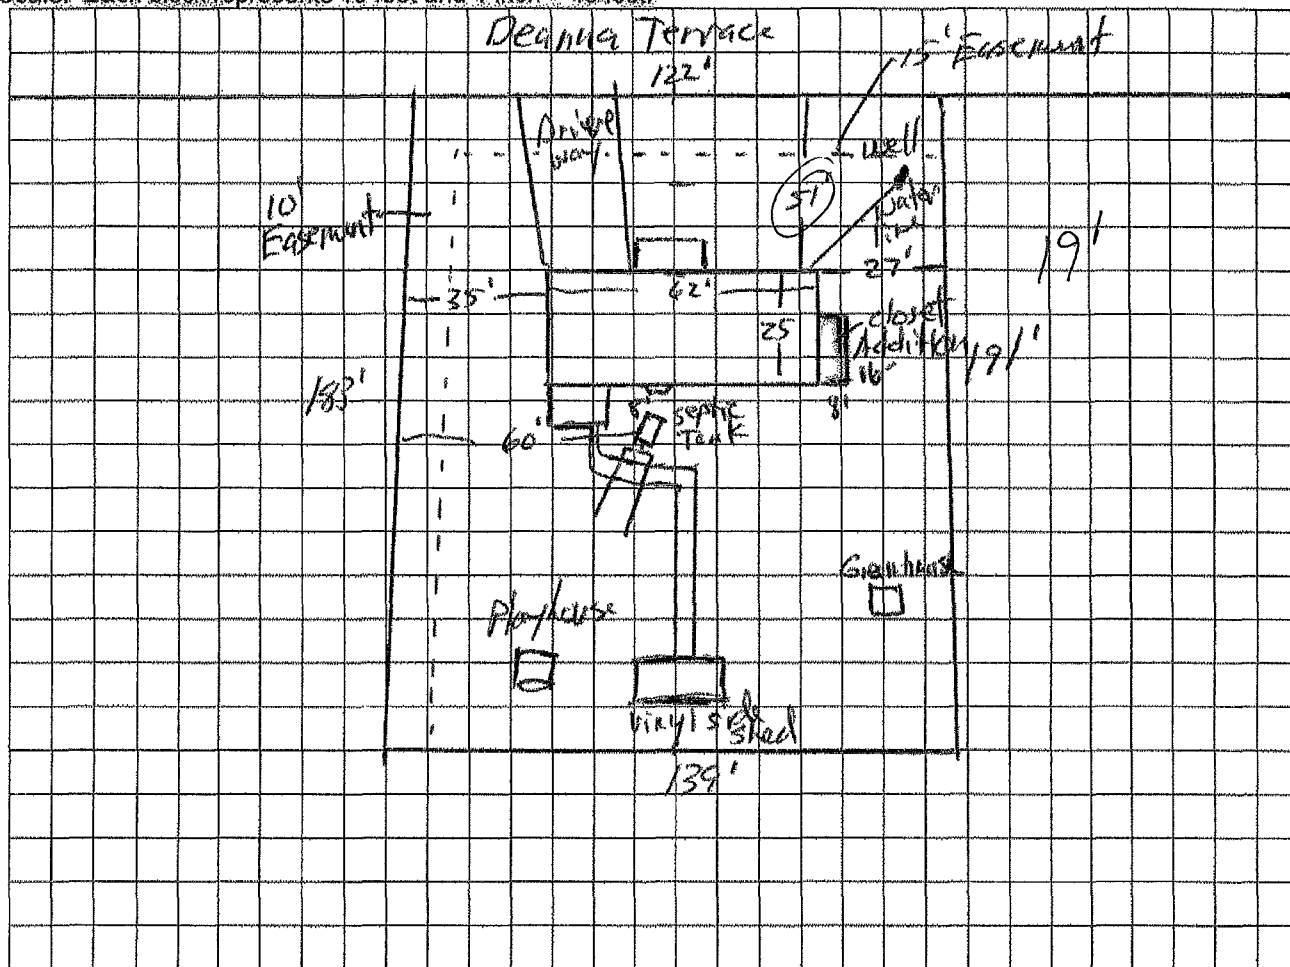 Deanna Terrace
122'
15' Easement
Drive
way
well
51'
water
line
10'
Easement
19'
27'
35'
62'
25
closet
Addition
16'
191'
183'
8'
8'
septic
Tank
60'
Greenhouse
Playhouse
vinyl side
shed
139'